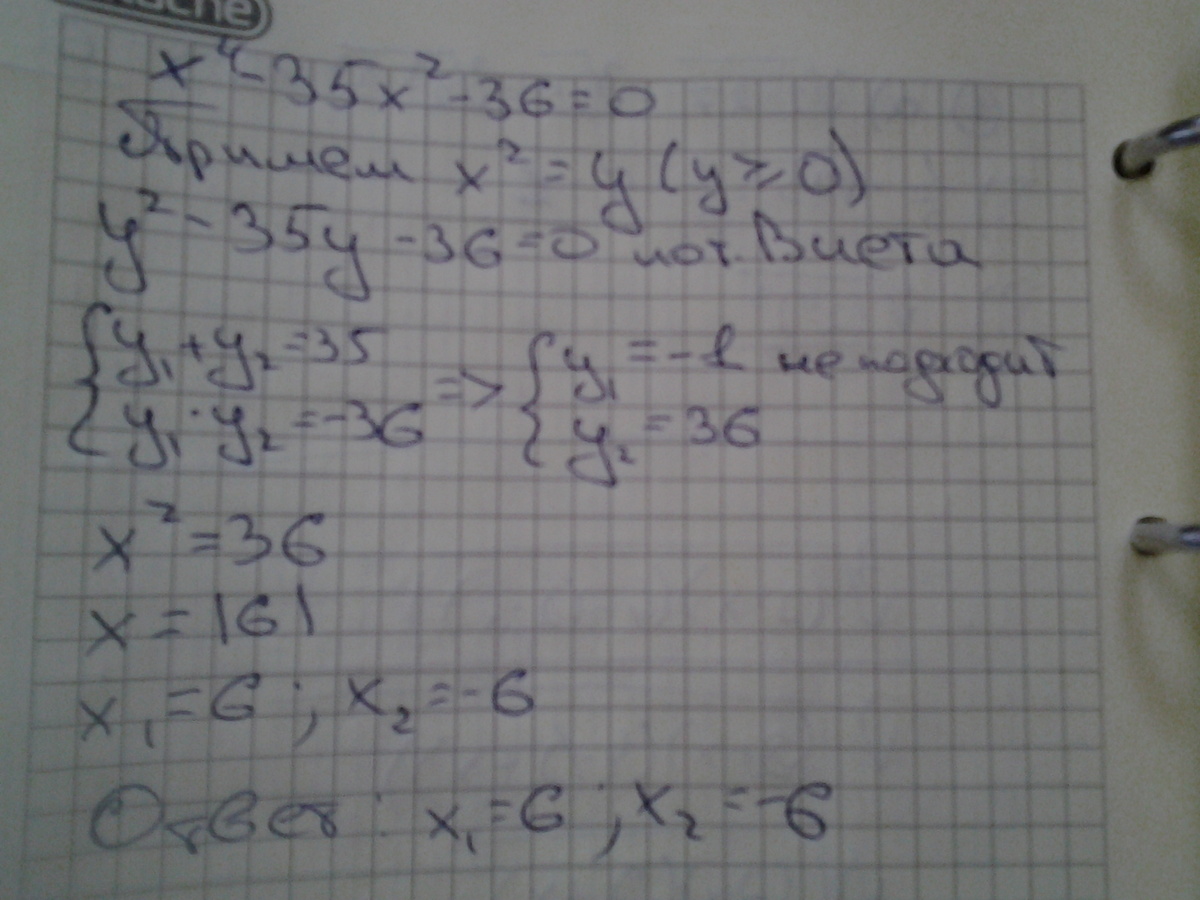 x⁴-35x²-36=0
Примем x²=y (y≥0)
y²-35y-36=0 по т. Виета
{y₁+y₂=35
{y₁·y₂=-36 => {y₁=-1 не подходит
{y₂=36
x²=36
x=|6|
x₁=6; x₂=-6
Ответ: x₁=6; x₂=-6